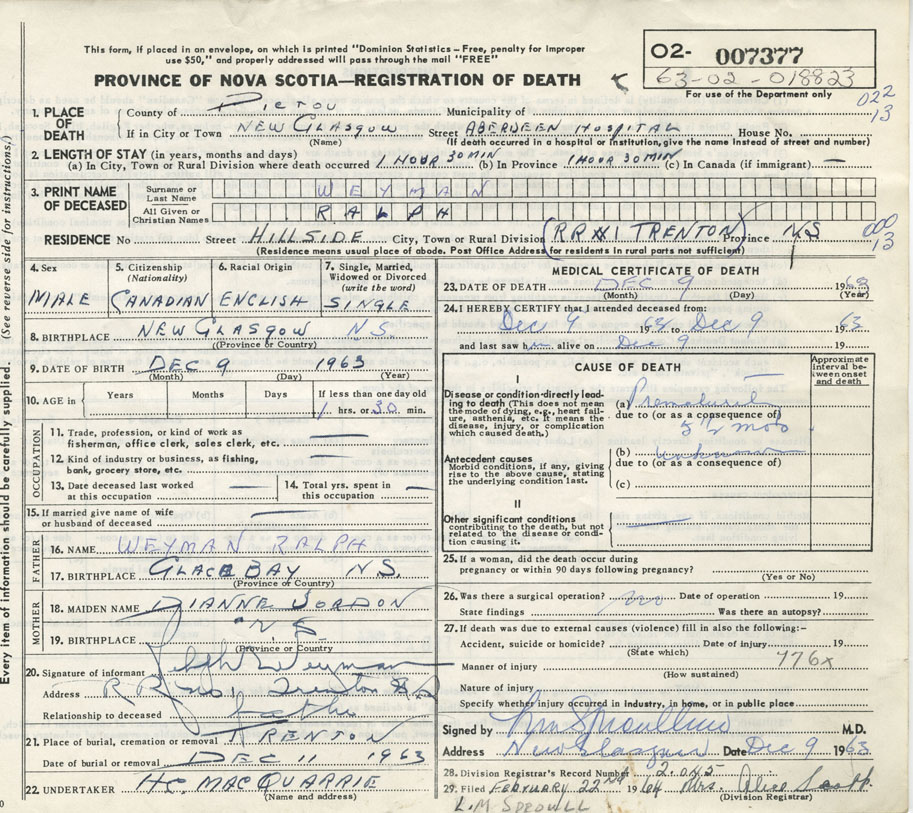 This form, if placed in an envelope, on which is printed "Dominion Statistics – Free, penalty for improper
use $50," and properly addressed will pass through the mail "FREE"
PROVINCE OF NOVA SCOTIA—REGISTRATION OF DEATH
O2- 007377
63-02-018823
For use of the Department only
022
13
1. PLACE OF DEATH
County of PICTOU Municipality of
If in City or Town NEW GLASGOW Street ABERDEEN HOSPITAL House No.
(Name) (If death occurred in a hospital or institution, give the name instead of street and number)
2. LENGTH OF STAY (in years, months and days)
(a) In City, Town or Rural Division where death occurred 1 HOUR 30 MIN (b) In Province 1 HOUR 30 MIN (c) In Canada (if immigrant) —
3. PRINT NAME OF DECEASED
Surname or Last Name WEYMAN
All Given or Christian Names RALPH
RESIDENCE No Street HILLSIDE City, Town or Rural Division (RR#1 TRENTON) Province N.S
000
13
(Residence means usual place of abode. Post Office Address for residents in rural parts not sufficient)
4. Sex
MALE
5. Citizenship (Nationality)
CANADIAN
6. Racial Origin
ENGLISH
7. Single, Married, Widowed or Divorced (write the word)
SINGLE
8. BIRTHPLACE NEW GLASGOW N.S.
(Province or Country)
9. DATE OF BIRTH DEC 9 1963
(Month) (Day) (Year)
10. AGE in Years Months Days If less than one day old
1 hrs. or 30 min.
OCCUPATION
11. Trade, profession, or kind of work as fisherman, office clerk, sales clerk, etc. —
12. Kind of industry or business, as fishing, bank, grocery store, etc. —
13. Date deceased last worked at this occupation —
14. Total yrs. spent in this occupation —
15. If married give name of wife or husband of deceased —
FATHER
16. NAME WEYMAN RALPH
17. BIRTHPLACE GLACE BAY N.S.
(Province or Country)
MOTHER
18. MAIDEN NAME DIANNE JORDON
19. BIRTHPLACE " N S
(Province or Country)
20. Signature of informant Ralph Weyman
Address R R no 1 Trenton N S
Relationship to deceased father
21. Place of burial, cremation or removal TRENTON
Date of burial or removal DEC 11 1963
22. UNDERTAKER H.C. MACQUARRIE
(Name and address)
MEDICAL CERTIFICATE OF DEATH
23. DATE OF DEATH DEC 9 1963
(Month) (Day) (Year)
24. I HEREBY CERTIFY that I attended deceased from:
Dec 9 1963 to Dec 9 1963
and last saw him alive on Dec 9 19
CAUSE OF DEATH
Approximate interval between onset and death
I
Disease or condition directly leading to death (This does not mean the mode of dying, e.g., heart failure, asthenia, etc. It means the disease, injury, or complication which caused death.)
(a) —
due to (or as a consequence of)
5½ mos
Antecedent causes
Morbid conditions, if any, giving rise to the above cause, stating the underlying condition last.
(b) unknown
due to (or as a consequence of)
(c)
II
Other significant conditions
contributing to the death, but not related to the disease or condition causing it.
25. If a woman, did the death occur during
pregnancy or within 90 days following pregnancy?
(Yes or No)
26. Was there a surgical operation? no Date of operation 19
State findings Was there an autopsy?
27. If death was due to external causes (violence) fill in also the following:-
Accident, suicide or homicide? Date of injury 19
(State which)
776x
Manner of injury
(How sustained)
Nature of injury
Specify whether injury occurred in industry, in home, or in public place
Signed by M.D.
Address New Glasgow Date Dec 9 1963
28. Division Registrar's Record Number 2.045
29. Filed FEBRUARY 22nd 1964 Mrs. Alice Scott
(Division Registrar)
L.M SPROULL
Every item of information should be carefully supplied. (See reverse side for instructions.)